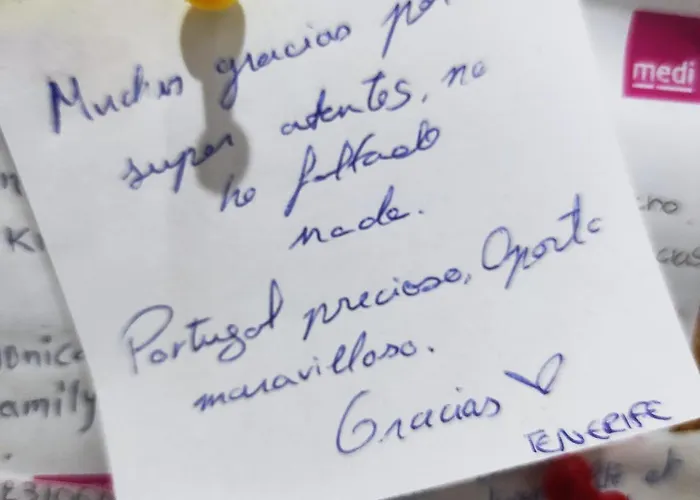 Muchas gracias por
super atentes, no
ha faltado
nada.
Portugal precioso, Oporto
maravilloso.
Gracias
TENERIFE
medi
onica
amily